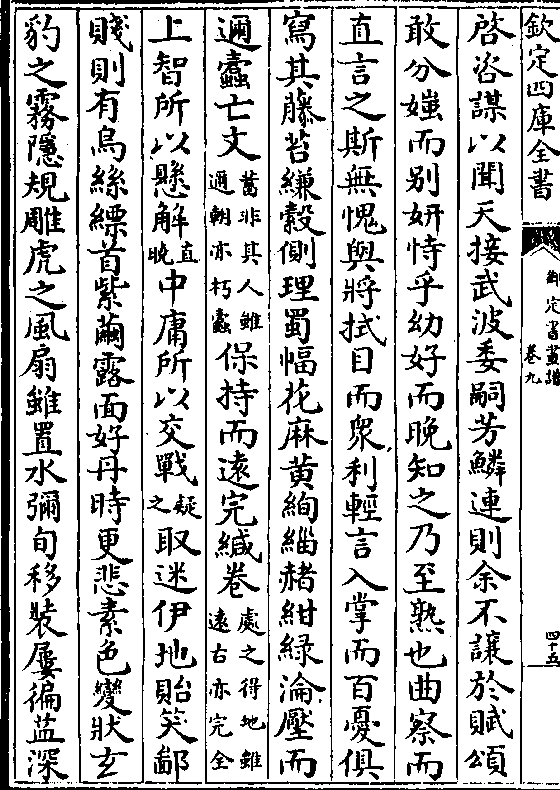 欽定四庫全書
御定書畫譜
卷九
四十五
啓咨謀以聞天接武波委嗣芳鱗連則余不讓於賦頌
敢分媸而别妍恃乎幼好而晚知之乃至熟也曲察而
直言之斯無愧與將拭目而衆利輕言入掌而百憂俱
寫其藤苔縑縠側理蜀幅花麻黄絢緇赭紺緑淪壓而
邇蠧亡文蓄非其人雖邇朝亦朽蠧保持而遠完緘卷處之得地雖遠古亦完全
上智所以懸解直晚中庸所以交戰疑之取迷伊地貽笑鄙
賤則有烏絲縹首紫繭露面好丹時更悲素色變狀玄
豹之霧隱規雕虎之風扇雖置水彌旬移裝屢徧藍深